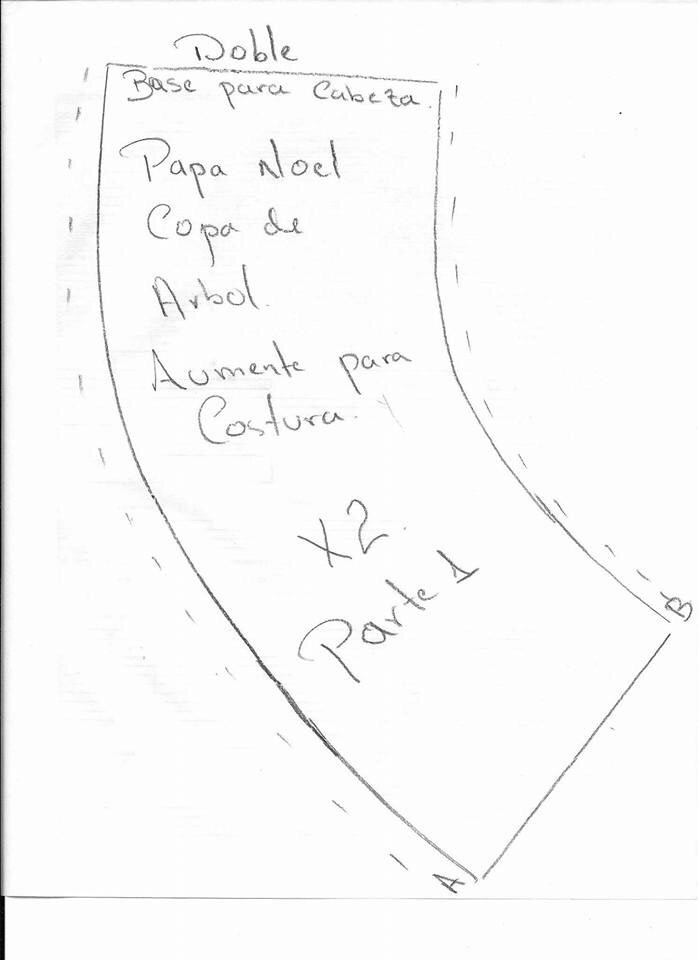 Doble
Base para Cabeza.
Papa Noel
Copa de
Arbol.
Aumente para
Costura.
X2.
Parte 1
B
A